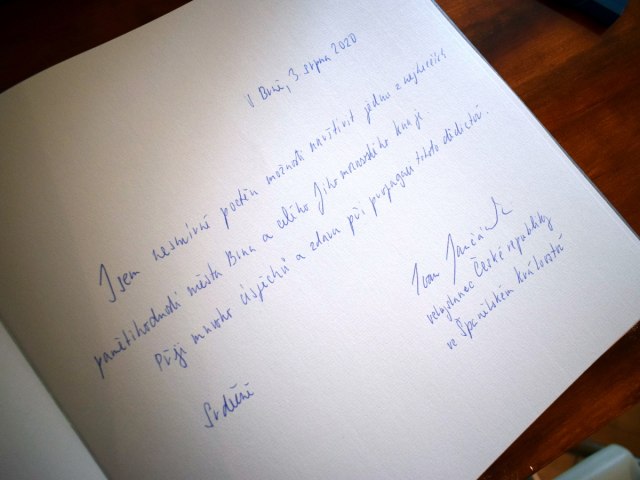 V Brně, 3. srpna 2020
Jsem nesmírně poctěn možností navštívit jednu z nejhezčích
pamětihodností města Brna a celého Jihomoravského kraje
Přeji mnoho úspěchů a zdaru při propagaci tohoto dědictví.
Srdečně
Ivan Jančárek
velvyslanec České republiky
ve Španělském království